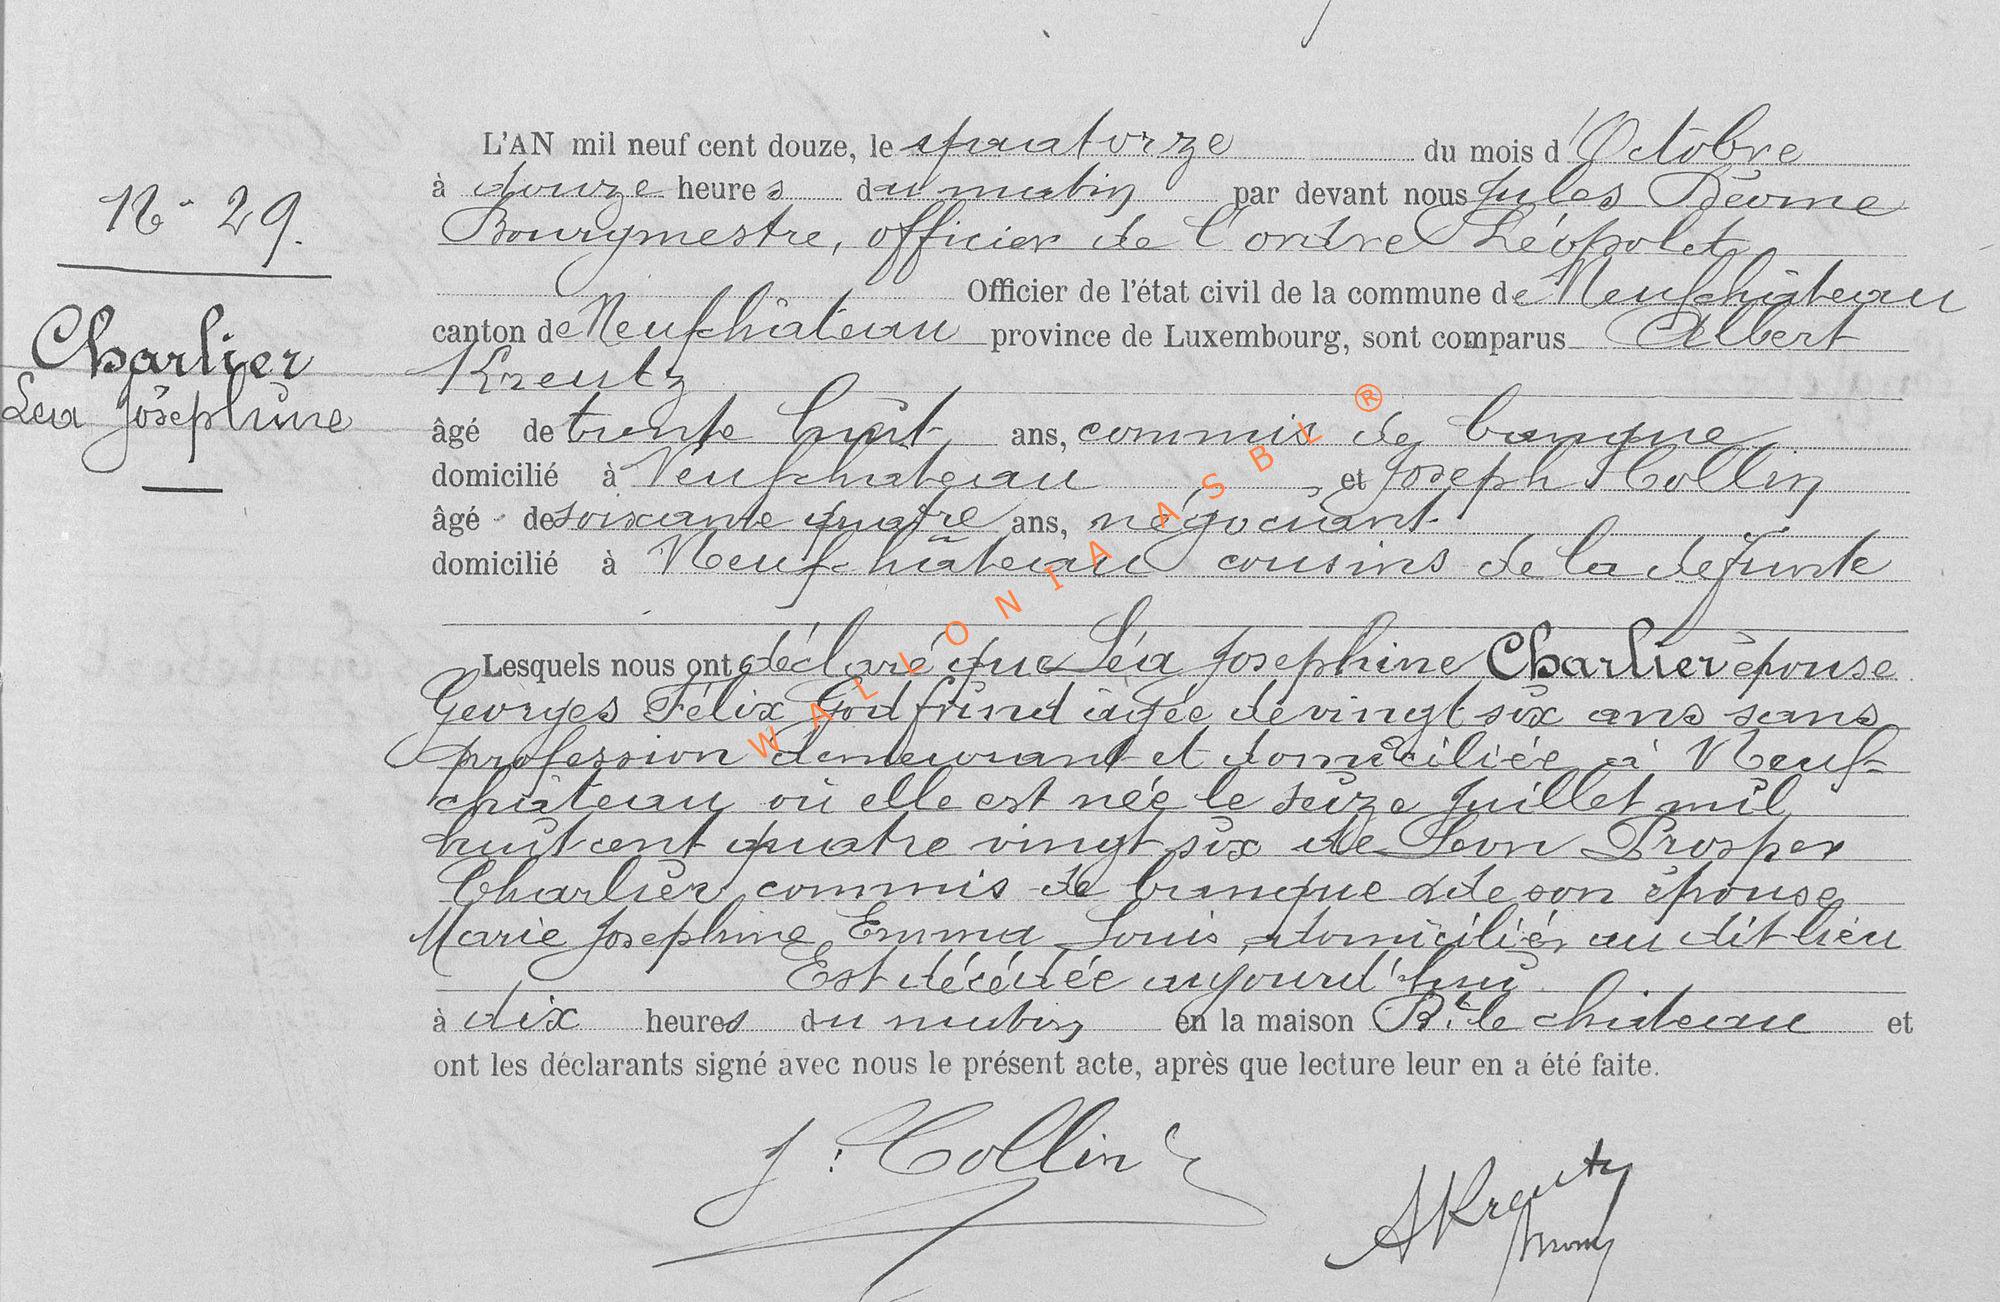 N° 29.
Charlier
Léa Joséphine
L'AN mil neuf cent douze, le quatorze du mois d'Octobre
à douze heures du matin par devant nous Jules
Bourgmestre, officier de l'ordre Léopold
Officier de l'état civil de la commune de Neufchâteau
canton de Neufchâteau province de Luxembourg, sont comparus Albert
Kreutz
âgé de trente huit ans, commis de banque
domicilié à Neufchateau et Joseph Collin
âgé de soixante quatre ans, négociant
domicilié à Neufchâteau cousins de la defunte
Lesquels nous ont déclaré que Léa Josephine Charlier épouse
Georges Félix Godfrind âgée de vingt six ans sans
profession demeurant et domiciliée à Neuf-
château où elle est née le seize Juillet mil
huit cent quatre vingt six de Léon Prosper
Charlier, commis de banque & de son épouse
Marie Josephine Emma Louis domiciliés au dit lieu
Est décédée aujourd'hui
à dix heures du matin en la maison Rt. le château et
ont les déclarants signé avec nous le présent acte, après que lecture leur en a été faite.
J. Collin
AKreutz
WALLONIA ASBL ®